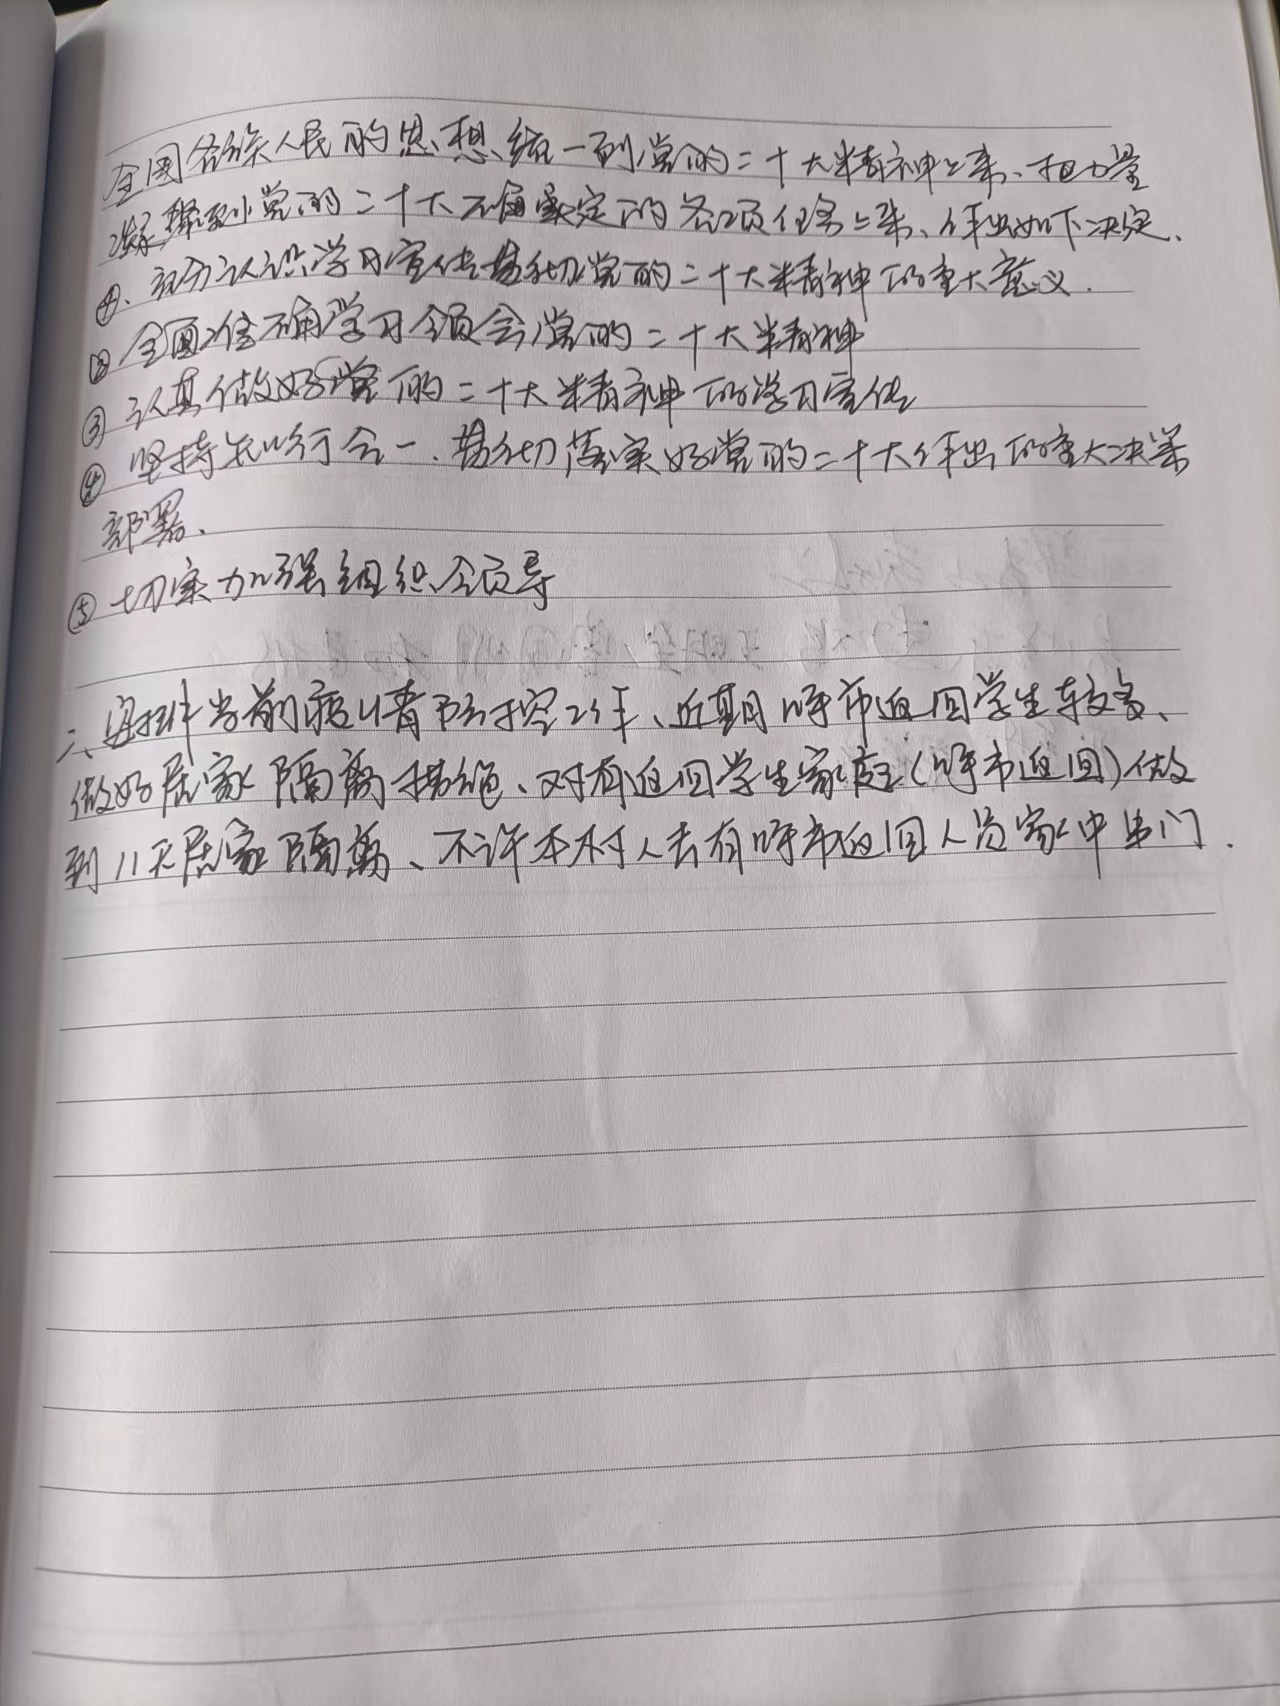 全国各族人民的思想统一到党的二十大精神上来、把力量
凝聚到党的二十大确定的各项任务上来、作出如下决定、
①、充分认识学习宣传贯彻党的二十大精神的重大意义.
② 全面准确学习领会党的二十大精神
③ 认真做好党的二十大精神的学习宣传
④ 坚持知行合一.贯彻落实好党的二十大作出的重大决策
部署、
⑤ 切实加强组织领导
二、安排当前疫情防控工作、近期呼市返回学生较多、
做好居家隔离措施、对有返回学生家庭(呼市返回)做
到11天居家隔离、不许本村人去有呼市返回人员家中串门.